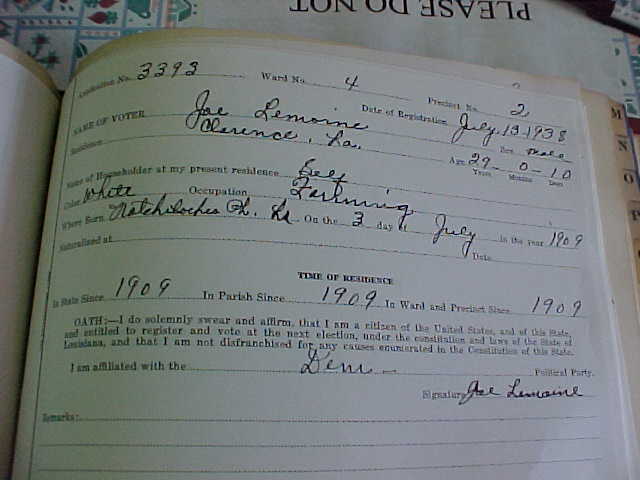 PLEASE DO NOT
Application No. 3393 Ward No. 4 Precinct No. 2
NAME OF VOTER Joe Lemoine Date of Registration July 13 1938
Residence Clarence, La. Sex male
Age 29 - 0 - 10
Years Months Days
Name of Householder at my present residence Self
Color White Occupation Farming
Where Born Natchitoches Ph. La On the 3 day of July in the year 1909
Naturalized at Date
TIME OF RESIDENCE
In State Since 1909 In Parish Since 1909 In Ward and Precinct Since 1909
OATH:—I do solemnly swear and affirm, that I am a citizen of the United States, and of this State,
and entitled to register and vote at the next election, under the constitution and laws of the State of
Louisiana, and that I am not disfranchised for any causes enumerated in the Constitution of this State.
I am affiliated with the Dem - Political Party.
Signature Joe Lemoine
Remarks:
M
N
O
P